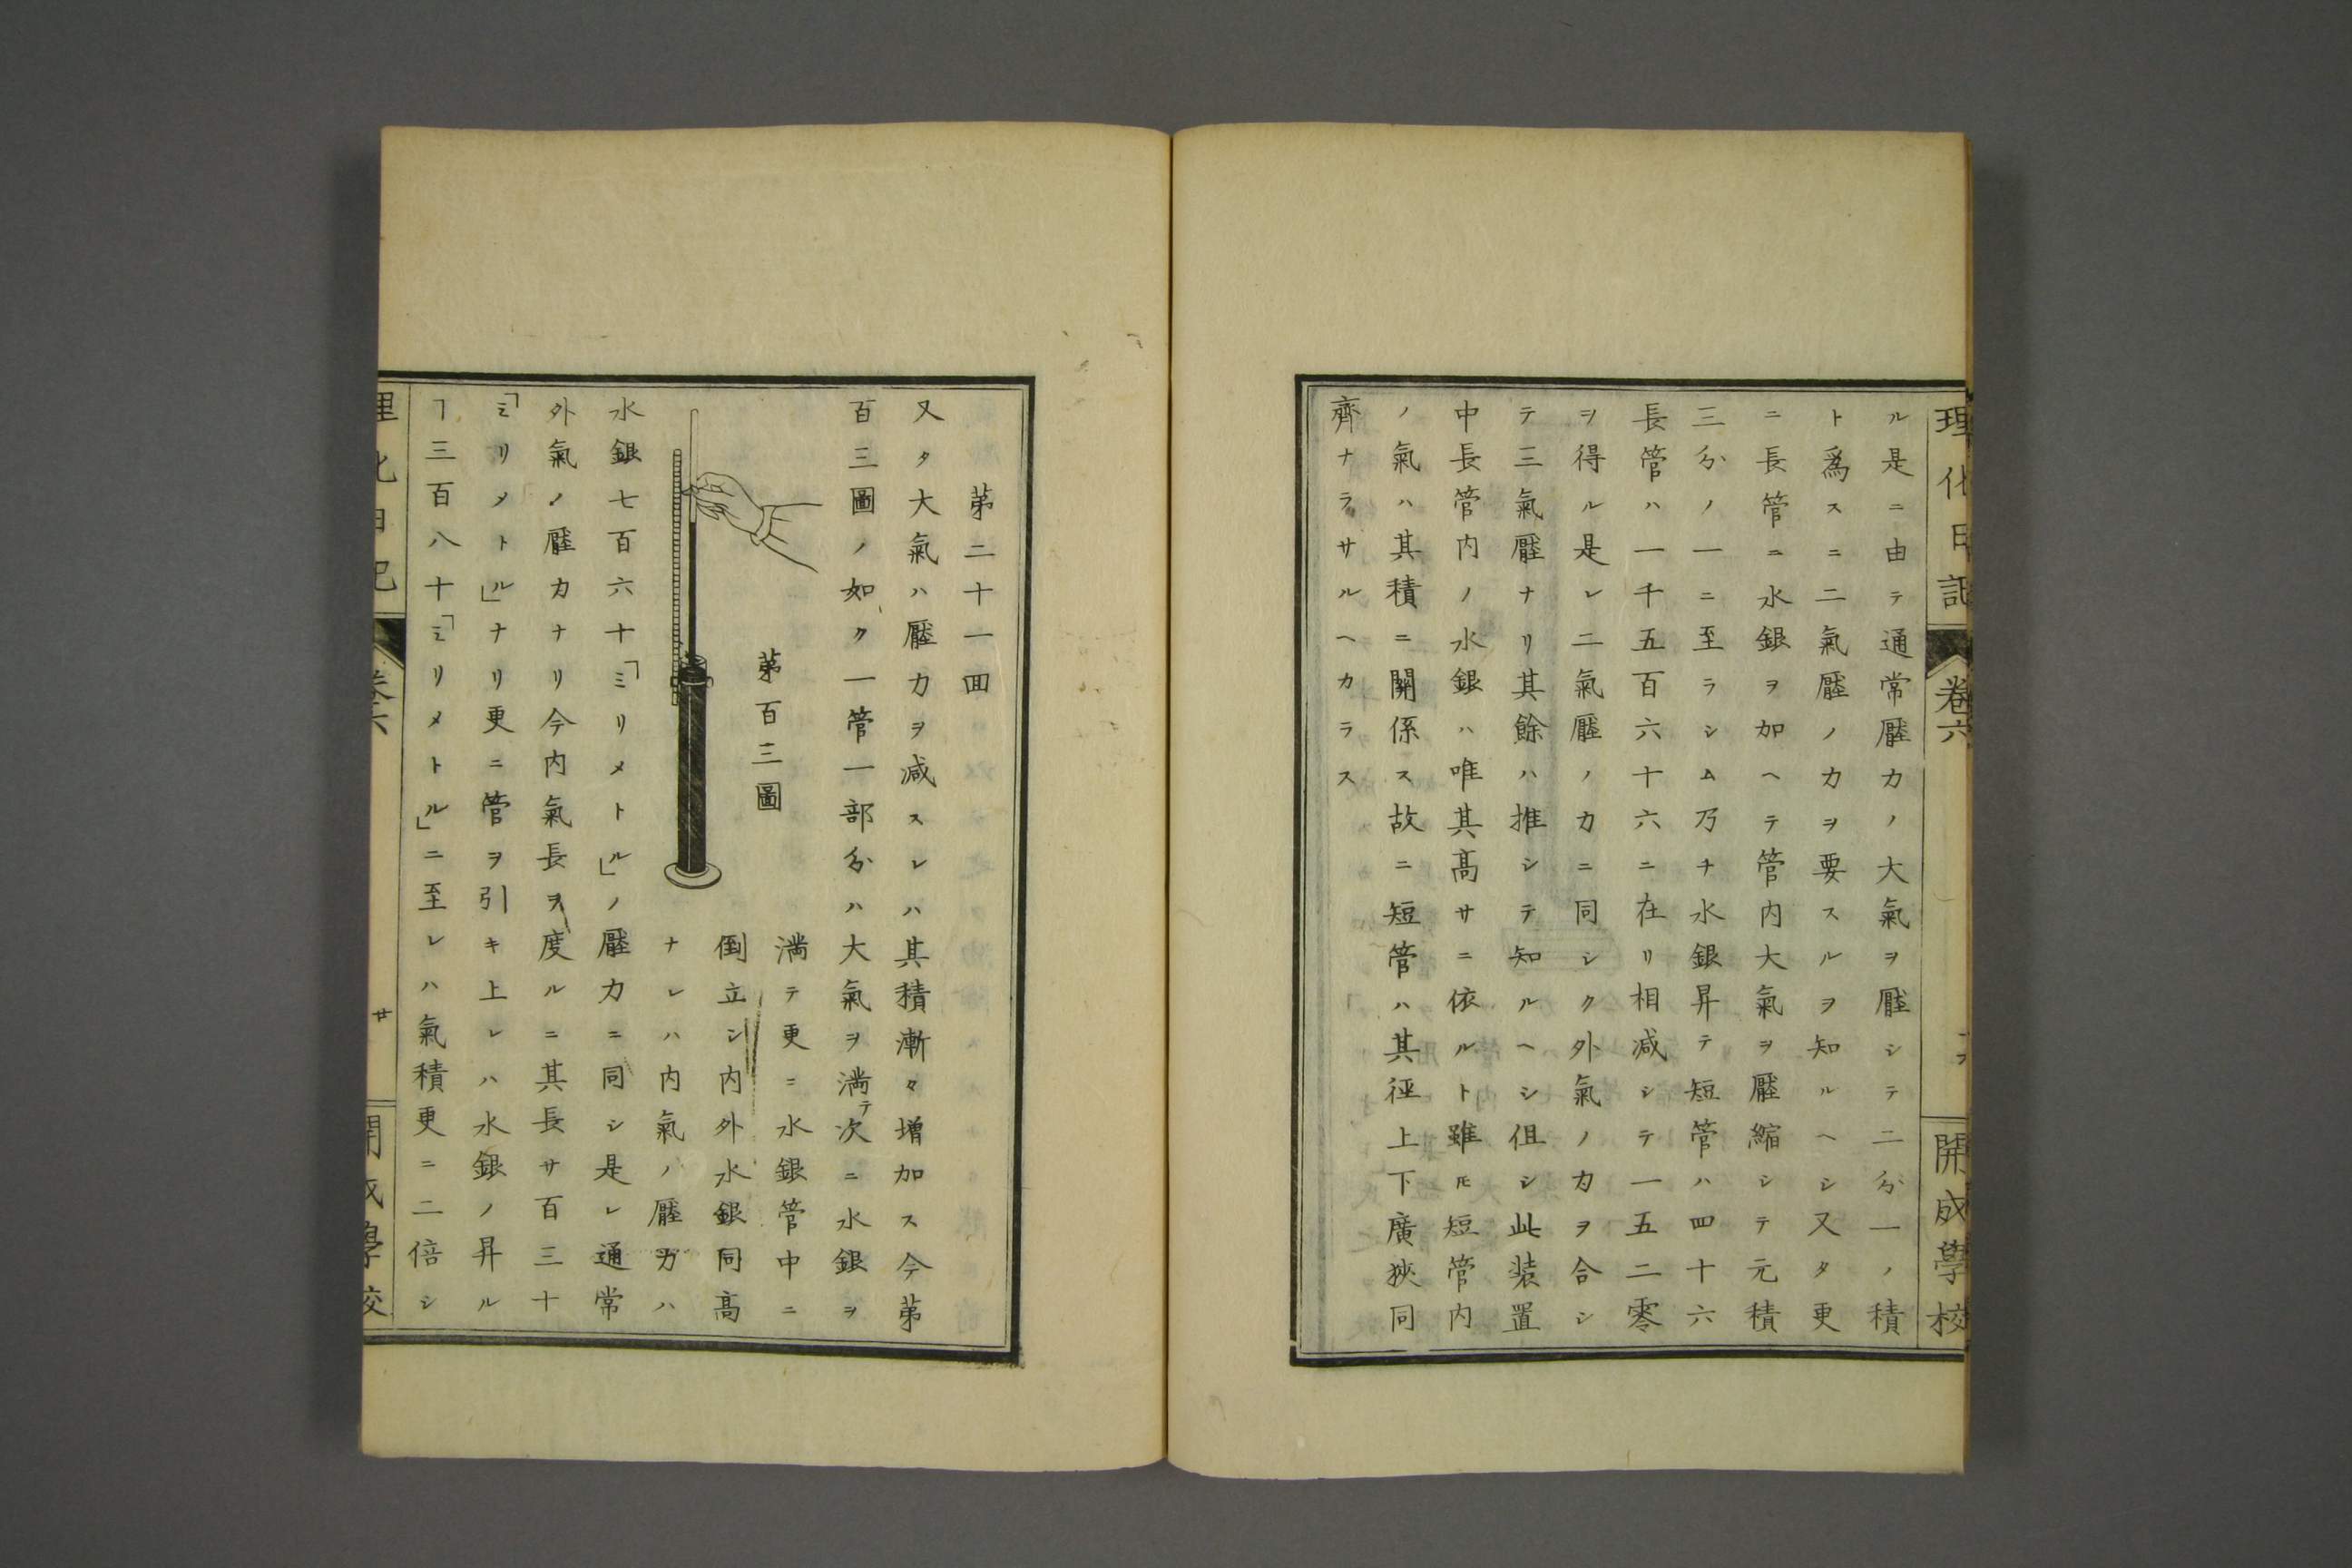 理化日記
卷六
開成學校
ル是ニ由テ通常壓力ノ大氣ヲ壓シテ二分一ノ積
ト爲スニ二氣壓ノ力ヲ要スルヲ知ルヘシ又タ更
ニ長管ニ水銀ヲ加ヘテ管内大氣ヲ壓縮シテ元積
三分ノ一ニ至ラシム乃チ水銀昇テ短管ハ四十六
長管ハ一千五百六十六ニ在リ相减シテ一五二零
ヲ得ル是レ二氣壓ノ力ニ同シク外氣ノ力ヲ合シ
テ三氣壓ナリ其餘ハ推シテ知ルヘシ但シ此装置
中長管内ノ水銀ハ唯其髙サニ依ルト雖𪜈短管内
ノ氣ハ其積ニ關係ス故ニ短管ハ其徑上下廣狹同
齊ナラサルヘカラス
第二十一回
又タ大氣ハ壓力ヲ减スレハ其積漸々増加ス今第
百三圖ノ如ク一管一部分ハ大氣ヲ満テ次ニ水銀ヲ
満テ更ニ水銀管中ニ
倒立シ内外水銀同髙
ナレハ内氣ノ壓力ハ
第百三圖
水銀七百六十「ミリメトル」ノ壓力ニ同シ是レ通常
外氣ノ壓力ナリ今内氣長ヲ度ルニ其長サ百三十
「ミリメトル」ナリ更ニ管ヲ引キ上レハ水銀ノ昇ル
ヿ三百八十「ミリメトル」ニ至レハ氣積更ニ二倍シ
卷六
廿